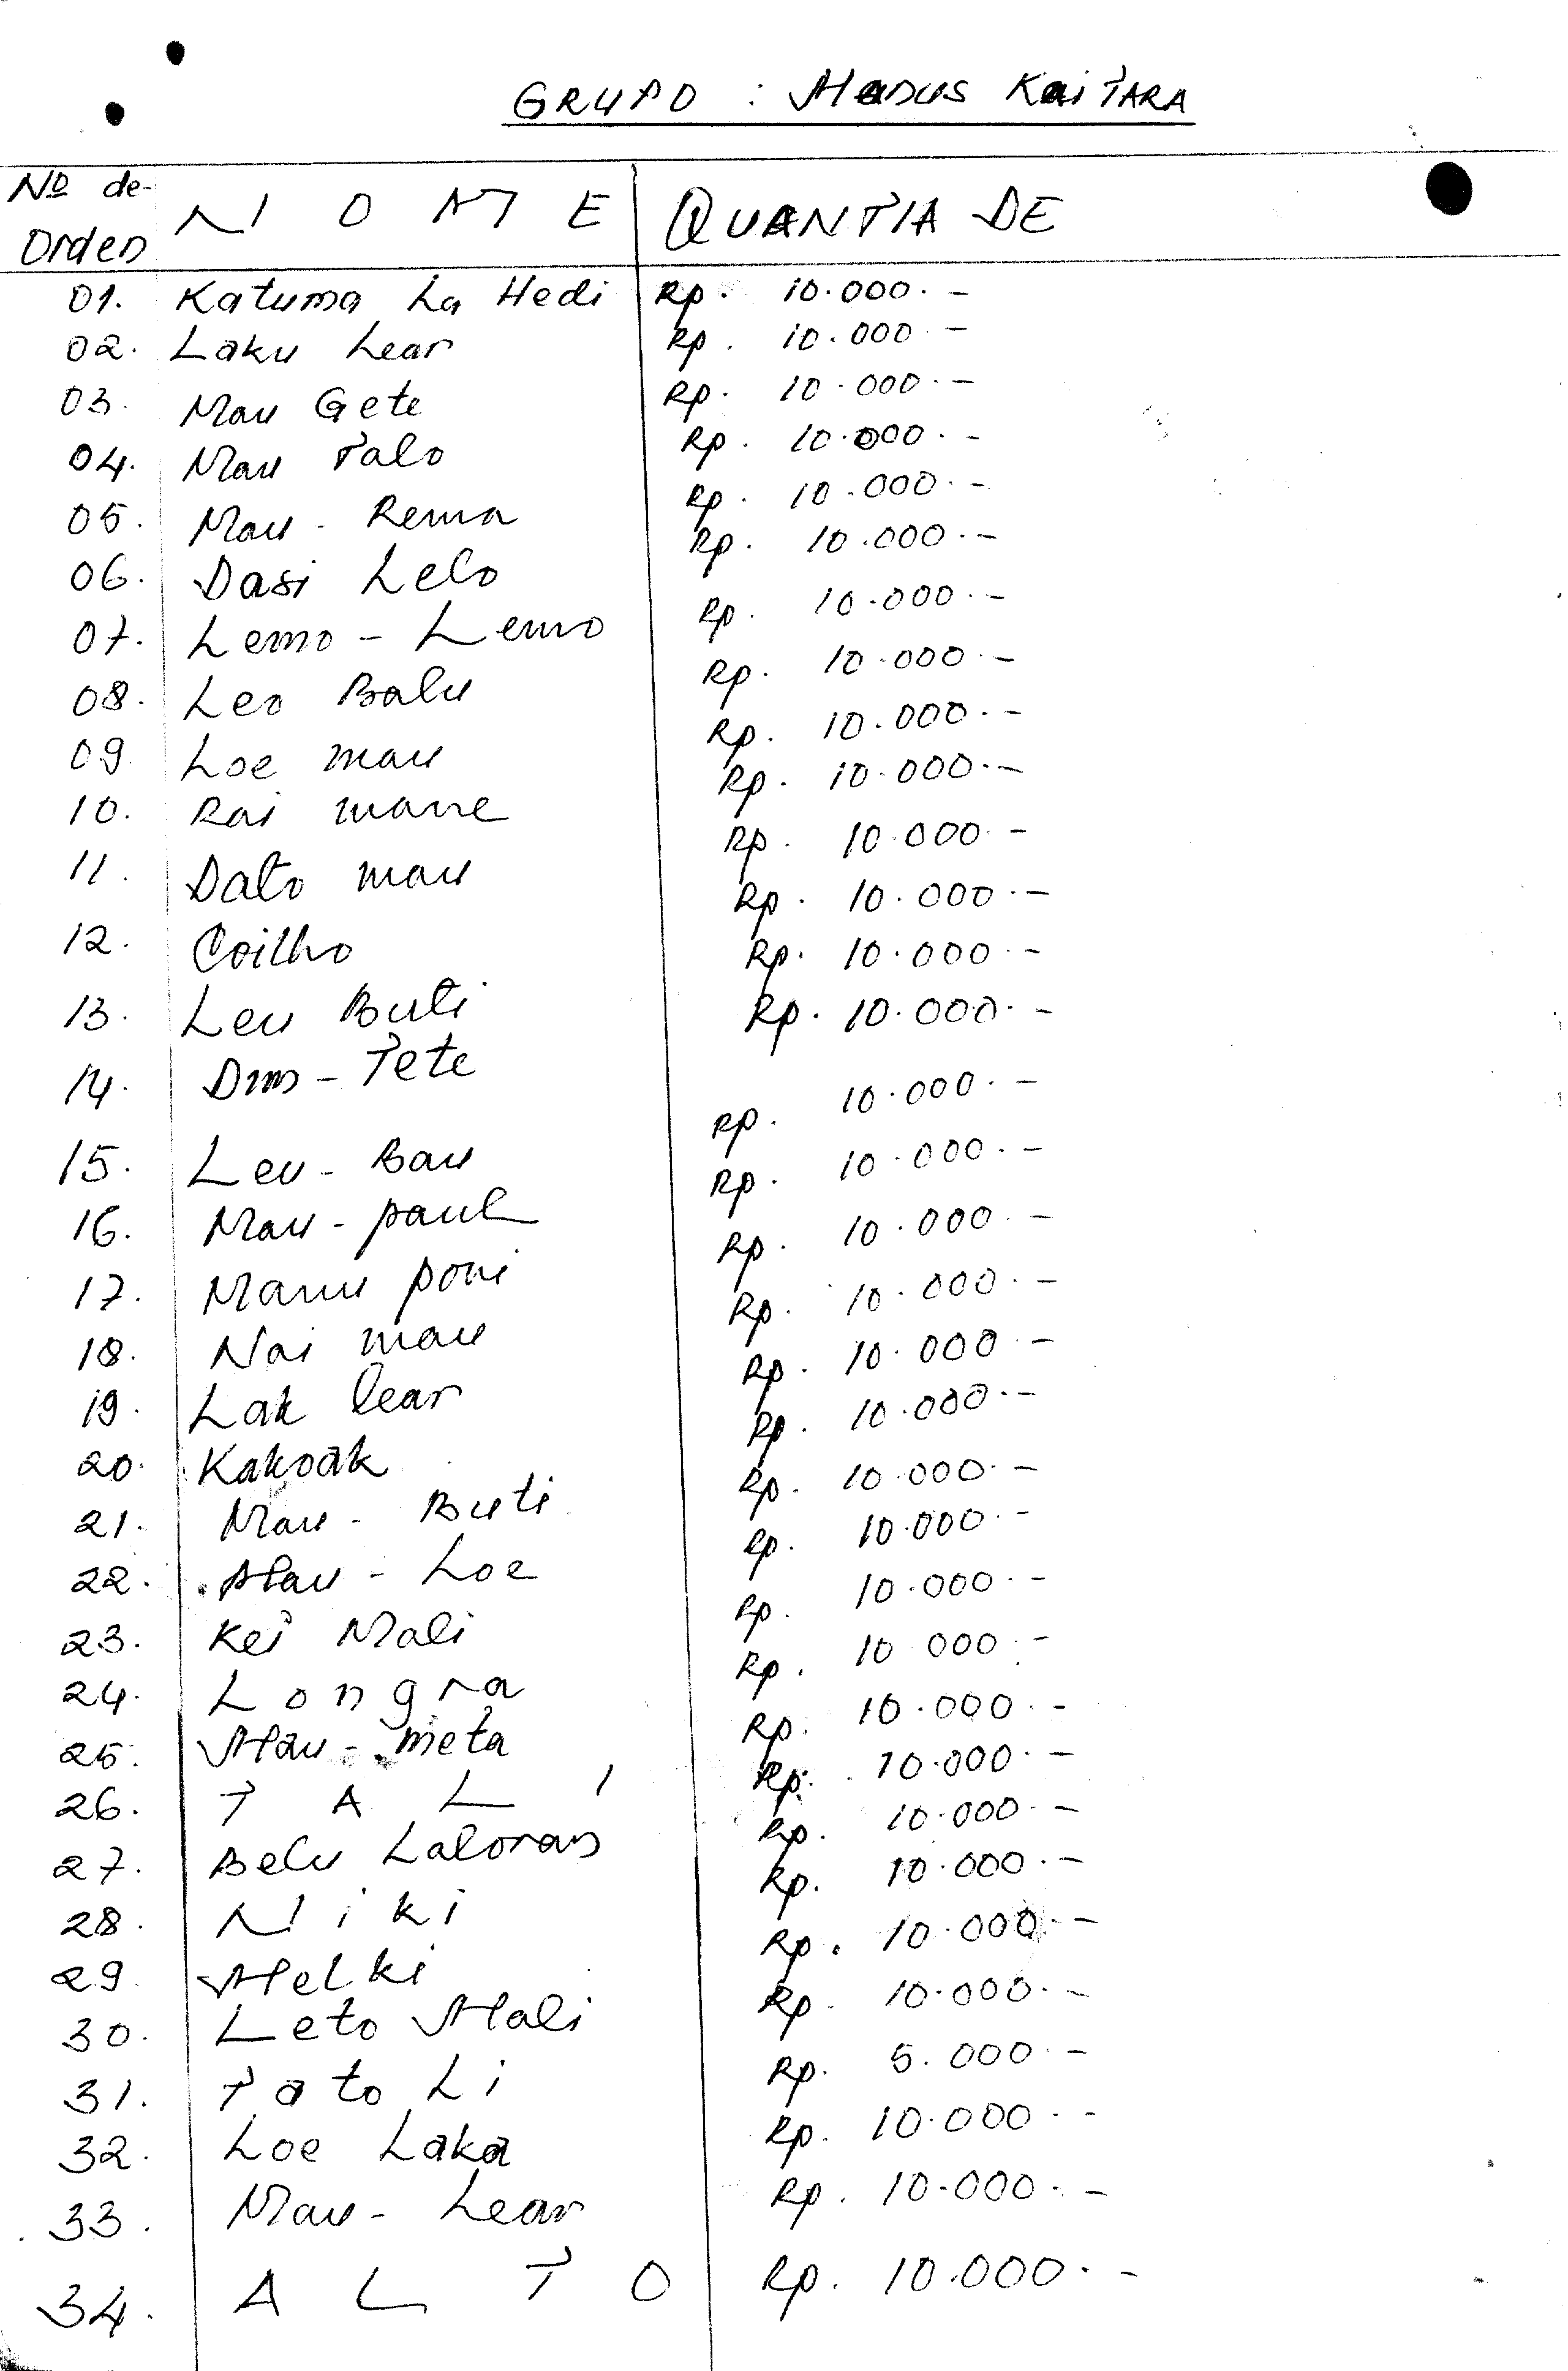 GRUPO : Manus KaiTARA
Nº de- Orden NOME QUANTIA DE
01. Katuma La Hedi Rp. 10.000.-
02. Laku Lear Rp. 10.000.-
03. Mau Gete Rp. 10.000.-
04. Mau Talo Rp. 10.000.-
05. Mau - Rema Rp. 10.000.-
06. Dasi Lelo Rp. 10.000.-
07. Lemo - Lemo Rp. 10.000.-
08. Leo Balu Rp. 10.000.-
09. Loe mau Rp. 10.000.-
10. Rai mane Rp. 10.000.-
11. Dato mau Rp. 10.000.-
12. Coilho Rp. 10.000.-
13. Leu Buti Rp. 10.000.-
14. - Tete Rp. 10.000.-
15. Leu - Bau Rp. 10.000.-
16. Mau - paul Rp. 10.000.-
17. Manu poni Rp. 10.000.-
18. Nai mau Rp. 10.000.-
19. Lak lear Rp. 10.000.-
20. Kakoak Rp. 10.000.-
21. Mau - Buti Rp. 10.000.-
22. Mau - Loe Rp. 10.000.-
23. Kei Mali Rp. 10.000.-
24. Longra Rp. 10.000.-
25. Mau - meta Rp. 10.000.-
26. TALI Rp. 10.000.-
27. Belu Laloran Rp. 10.000.-
28. Niki Rp. 10.000.-
29. Melki Rp. 10.000.-
30. Leto Mali Rp. 10.000.-
31. Tato Li Rp. 5.000.-
32. Loe Laka Rp. 10.000.-
33. Mau - Lear Rp. 10.000.-
34. ALTO Rp. 10.000.-